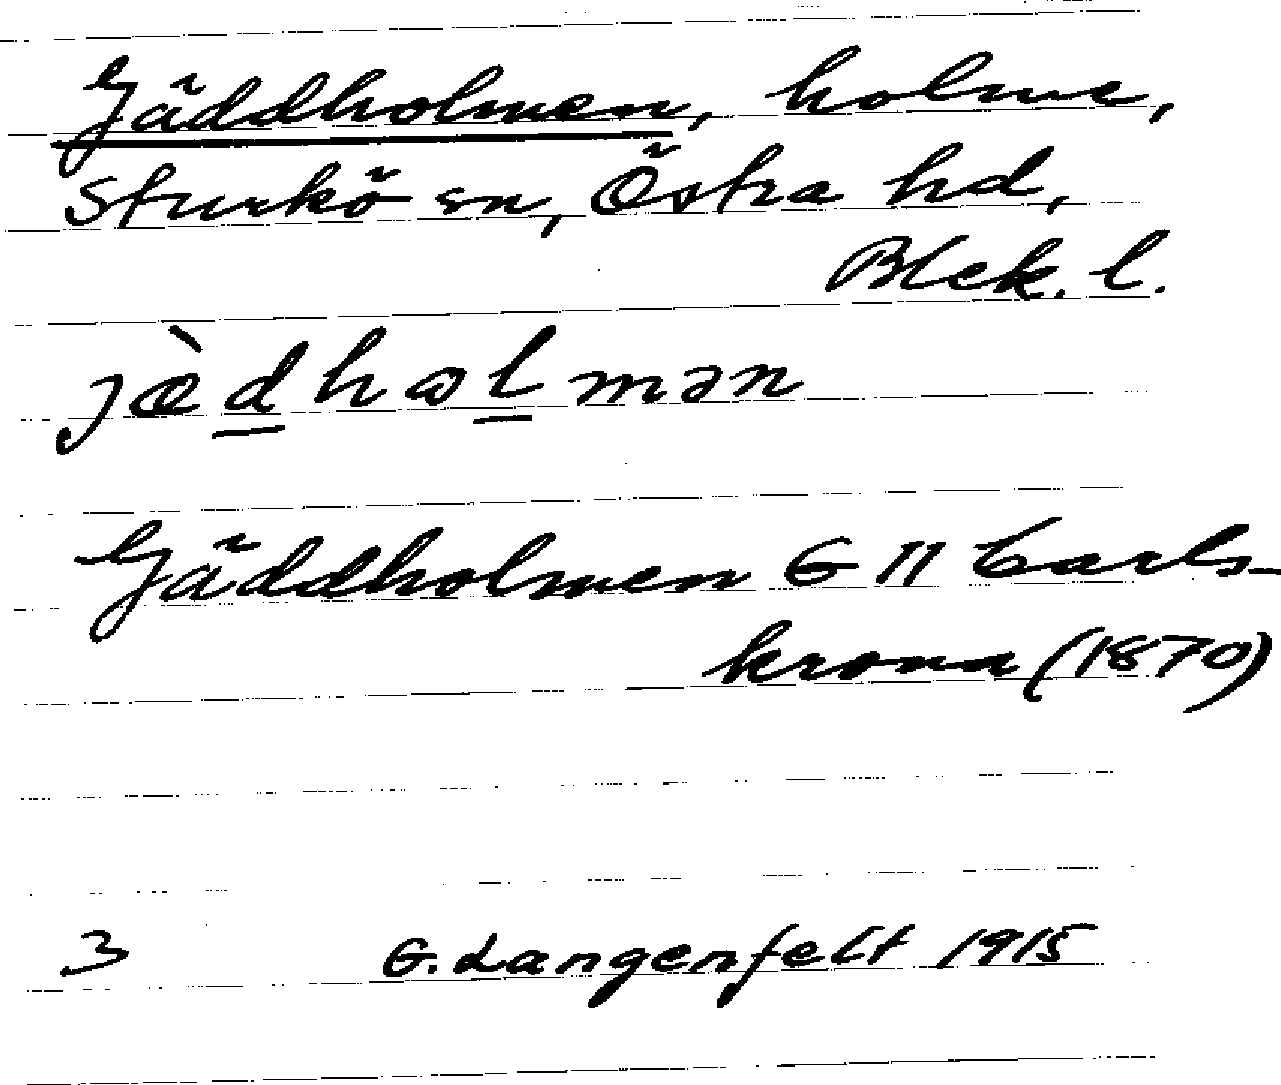 Gäddholmen, holme,
Sturkö sn, Östra hd,
Blek. l.
jæ̀dhꞷlmən
Gäddholmen G II Carls-
krona (1870)
3 G. Langenfelt 1915